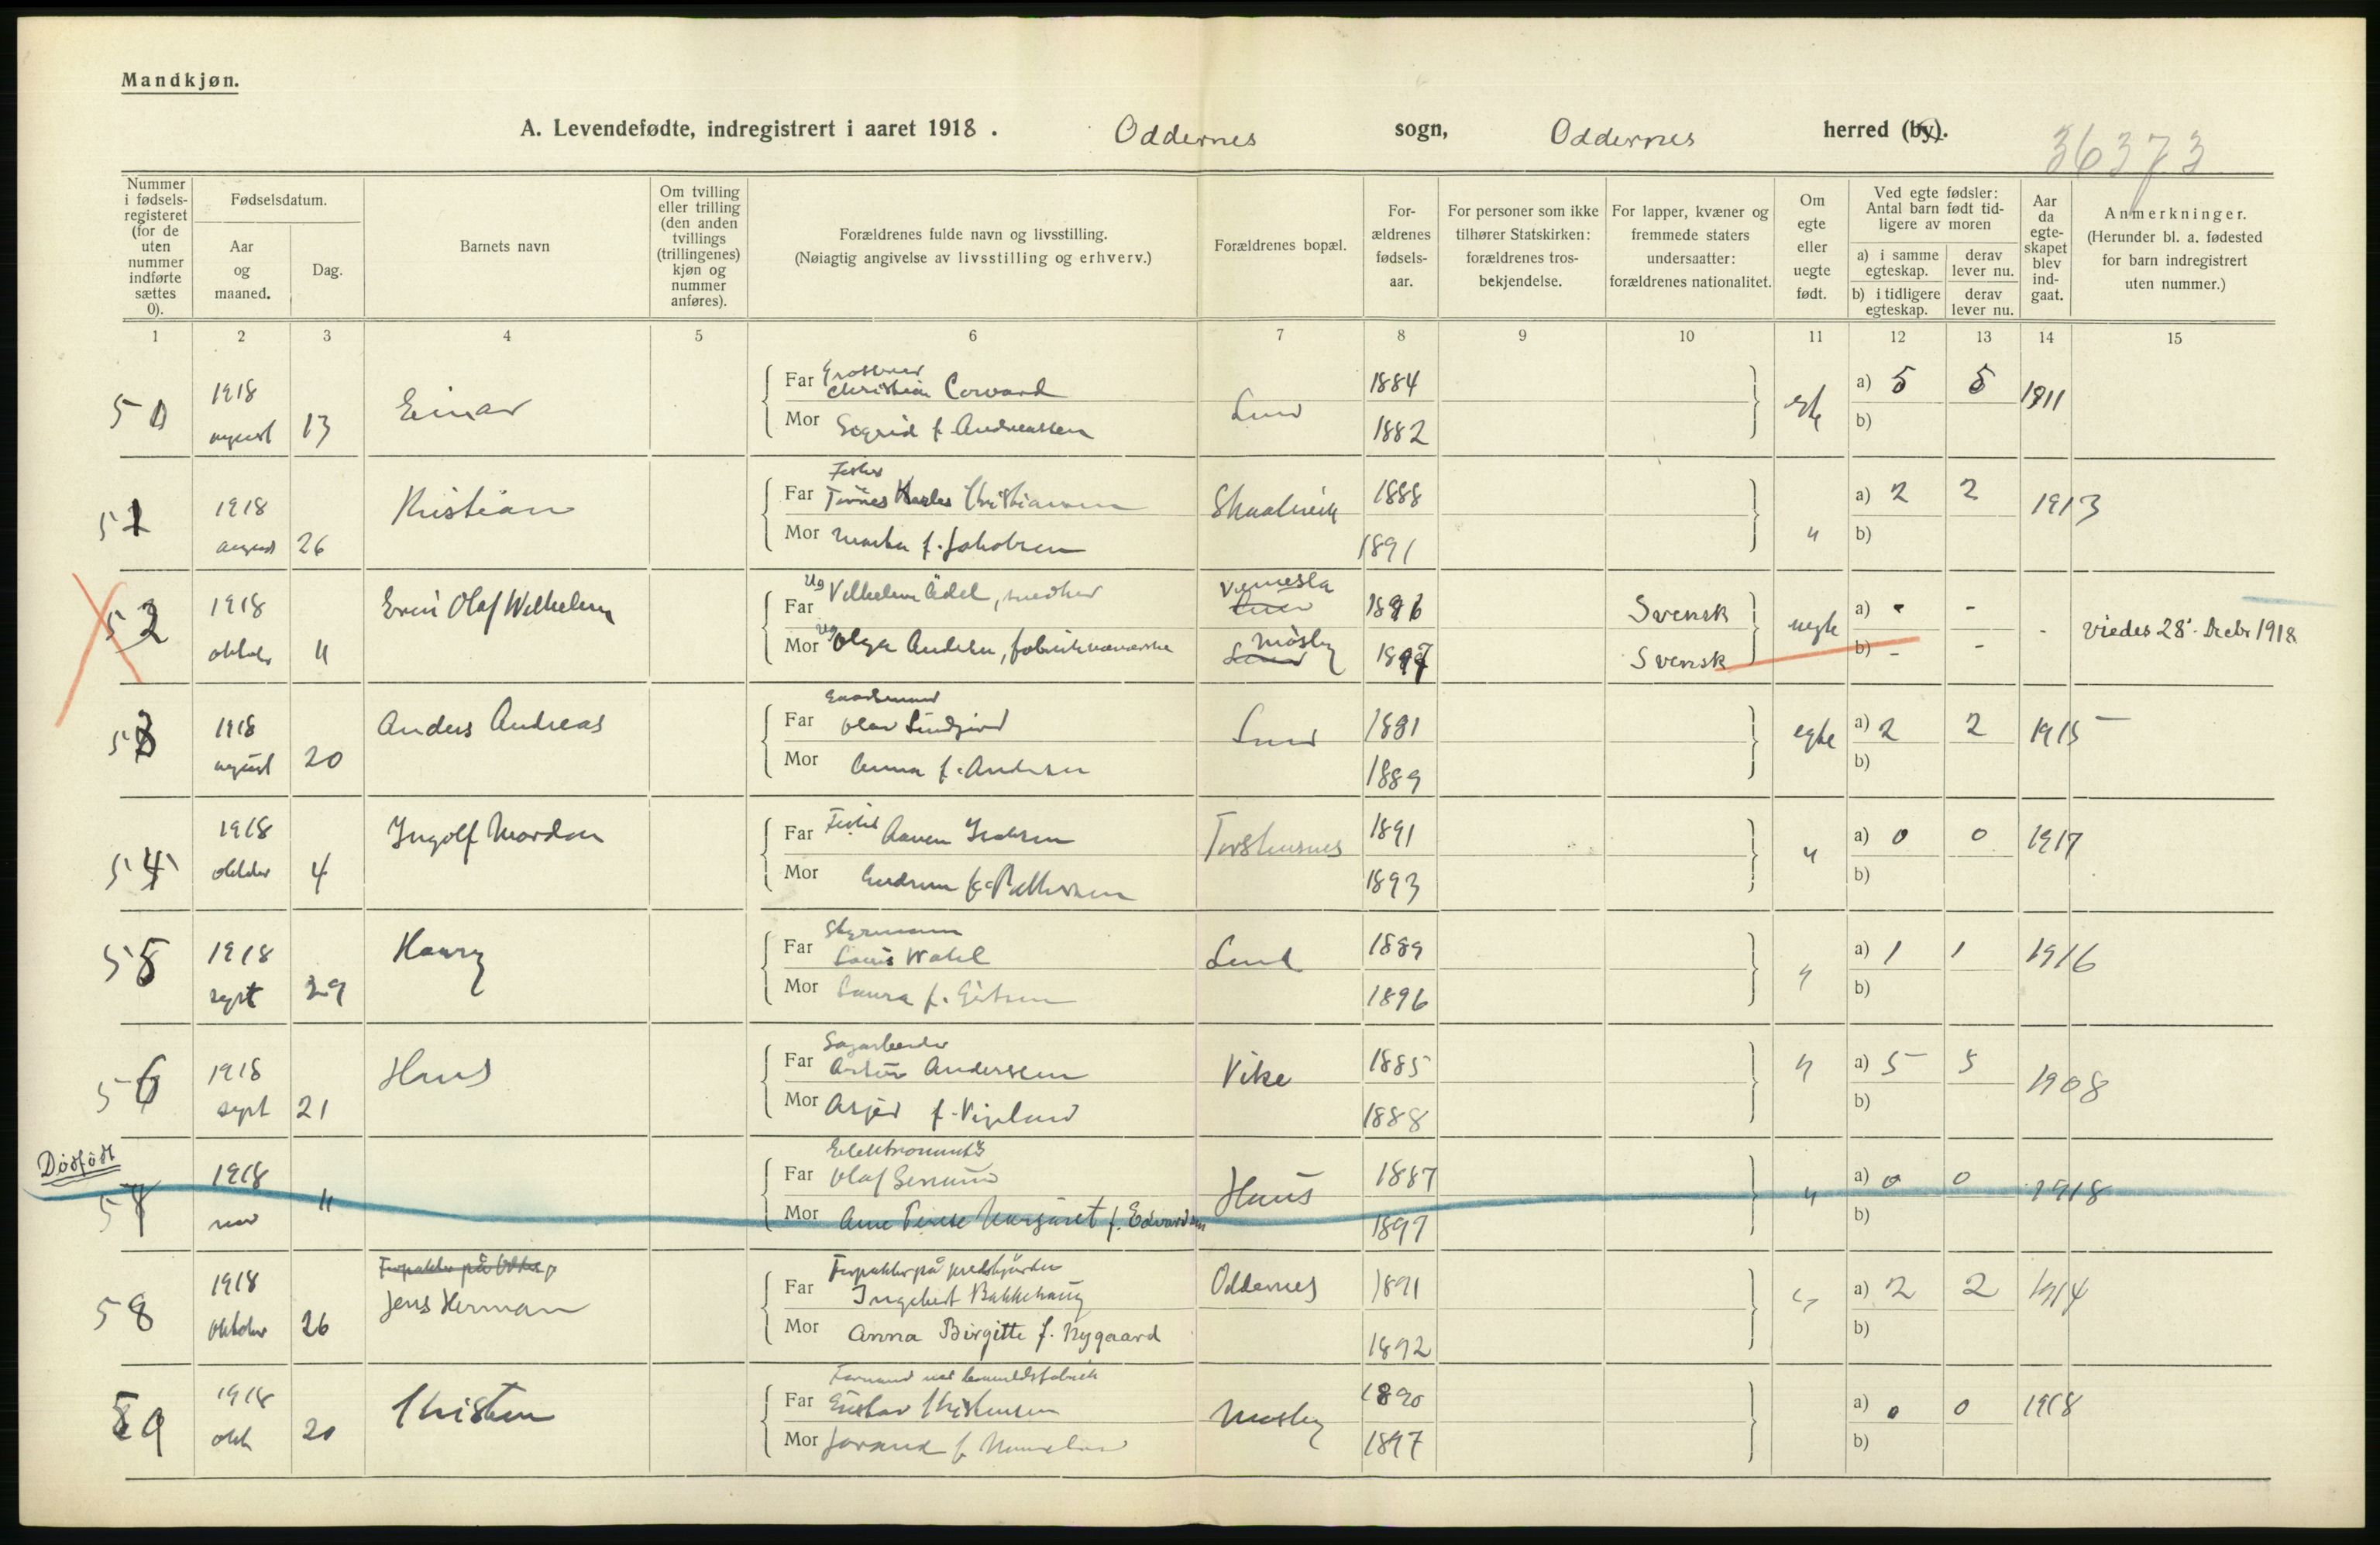 Mandkjøn.
A. Levendefødte, indregistrert i aaret 1918. Oddernes sogn, Oddernes herred (by).
36373
Nummer i fødsels-registeret (for de uten nummer indførte sættes 0).
Fødselsdatum.
Aar og maaned.
Dag.
Barnets navn
Om tvilling eller trilling (den anden tvillings (trillingenes) kjøn og nummer anføres).
Forældrenes fulde navn og livsstilling.
(Nøiagtig angivelse av livsstilling og erhverv.)
Forældrenes bopæl.
For-ældrenes fødsels-aar.
For personer som ikke tilhører Statskirken: forældrenes tros-bekjendelse.
For lapper, kvæner og fremmede staters undersaatter: forældrenes nationalitet.
Om egte eller uegte født.
Ved egte fødsler: Antal barn født tid-ligere av moren
a) i samme egteskap.
derav lever nu.
b) i tidligere egteskap.
derav lever nu.
Aar da egte-skapet blev ind-gaat.
Anmerkninger.
(Herunder bl. a. fødested for barn indregistrert uten nummer.)
1 2 3 4 5 6 7 8 9 10 11 12 13 14 15
1918 Einar Far Christian Corvard 1884 a) 5 5 1911
august 13 Mor Sigrid f. Andreassen Lund 1882 egte b)
51 1918 Kristian Far Tønnes Karles Christiansen Skaalevik 1888 a) 2 2 1913
august 26 Mor Marta f. Jakobsen 1891 " b)
52 1918 Olaf Wilhelm Far Ug Vilhelm Ådel, Vennesla 1896 Svensk uegte a) - -
oktober 11 Mor Ug Olga Andersen, Mosby 1897 Svensk b) - - - Viedes 28'. Decbr 1918
53 1918 Anders Andreas Far Olav Lund 1881 egte a) 2 2 1915
august 20 Mor Anna f. Andersen 1889 b)
54 1918 Ingolf Far Fisker 1891 a) 0 0 1917
oktober 4 Mor Gudrun f. 1893 " b)
55 1918 Harry Far Styrmann
Louis Wahl Lund 1889 a) 1 1 1916
sept 29 Mor Laura f. 1896 " b)
56 1918 Hans Far Sagarbeider
Andersen Vike 1885 " a) 5 5 1908
sept 21 Mor Asjer f. Vigeland 1888 b)
Dødfødt
57 1918 Far Elektromontør
Olaf 1887 a) 0 0 1918
nov 11 Mor Ane Terese Margaret f. Edvardsen 1897 " b)
58 1918 Jens Herman Far Forpakter på
Ingebret Bakkehaug Oddernes 1891 " a) 2 2 1914
oktober 26 Mor Anna Birgitte f. Nygaard 1892 b)
59 1918 Kristen Far
Gustav Kristensen Mosby 1890 a) 0 0 1918
okt 20 Mor Jorand f. 1897 b)